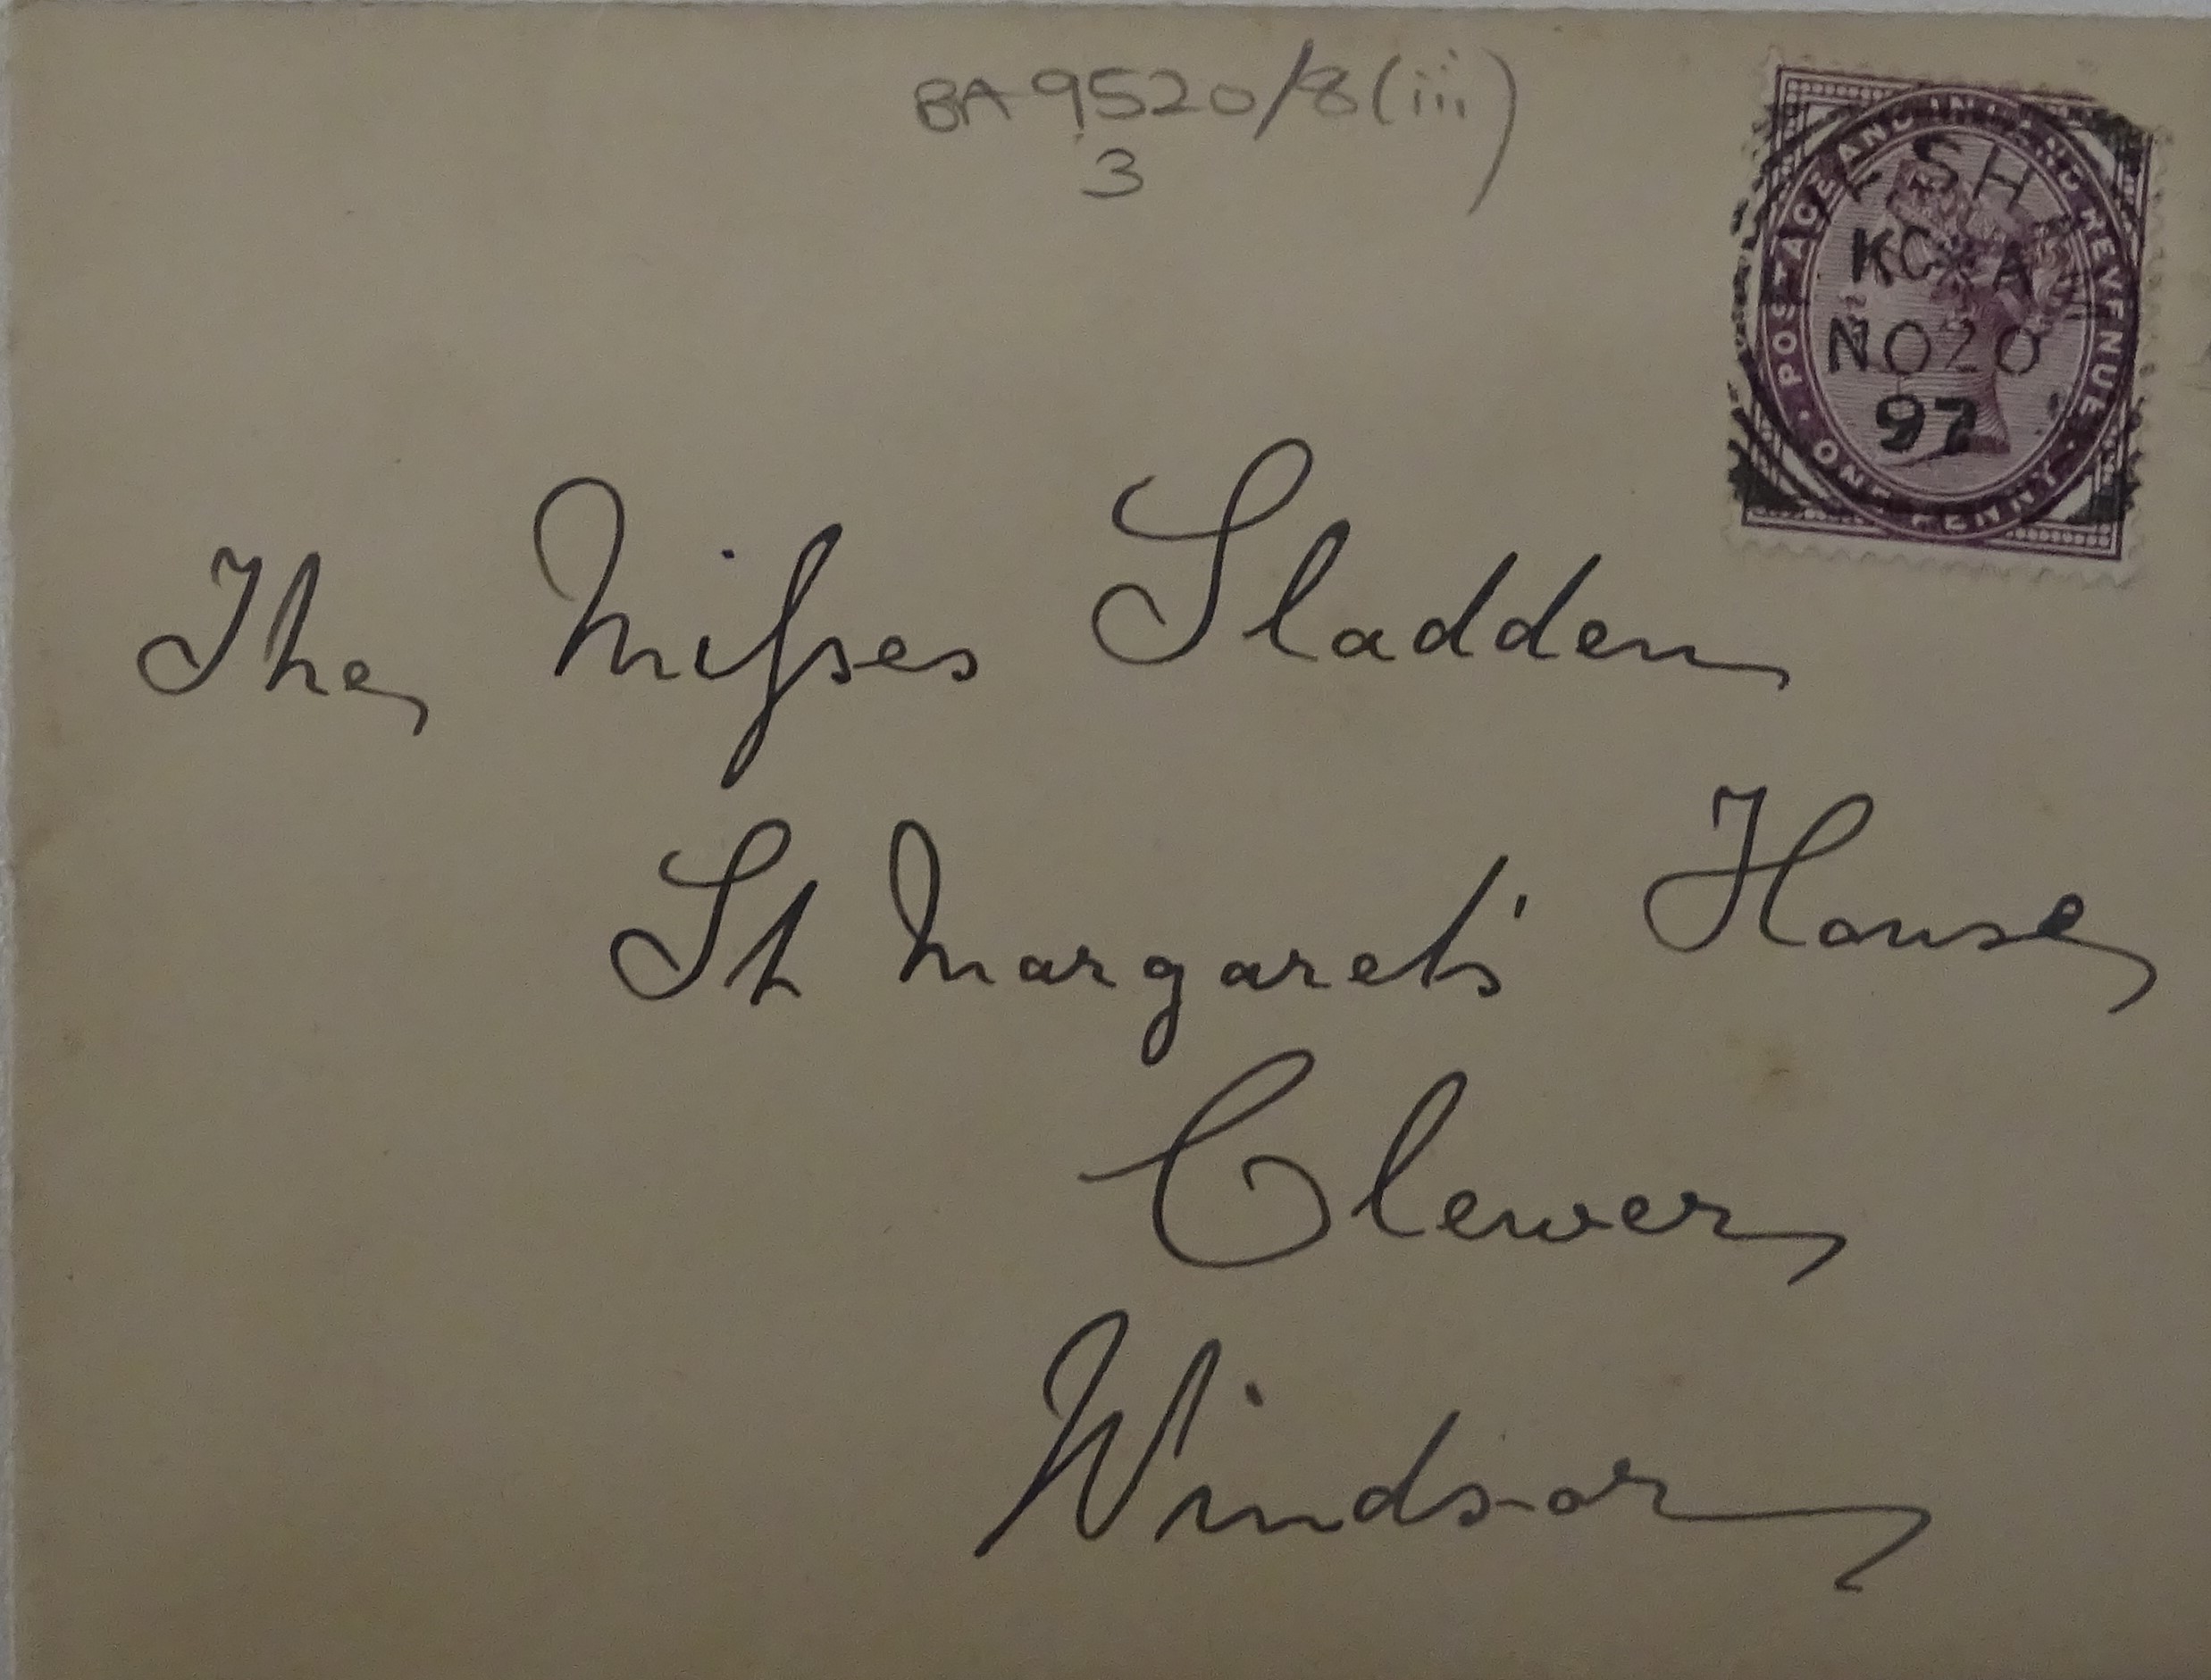 BA 9520/8(iii)
3
POSTAGE AND INLAND REVENUE
ONE PENNY
NO 20
97
The Misses Sladden
St Margaret's House
Clewer
Windsor